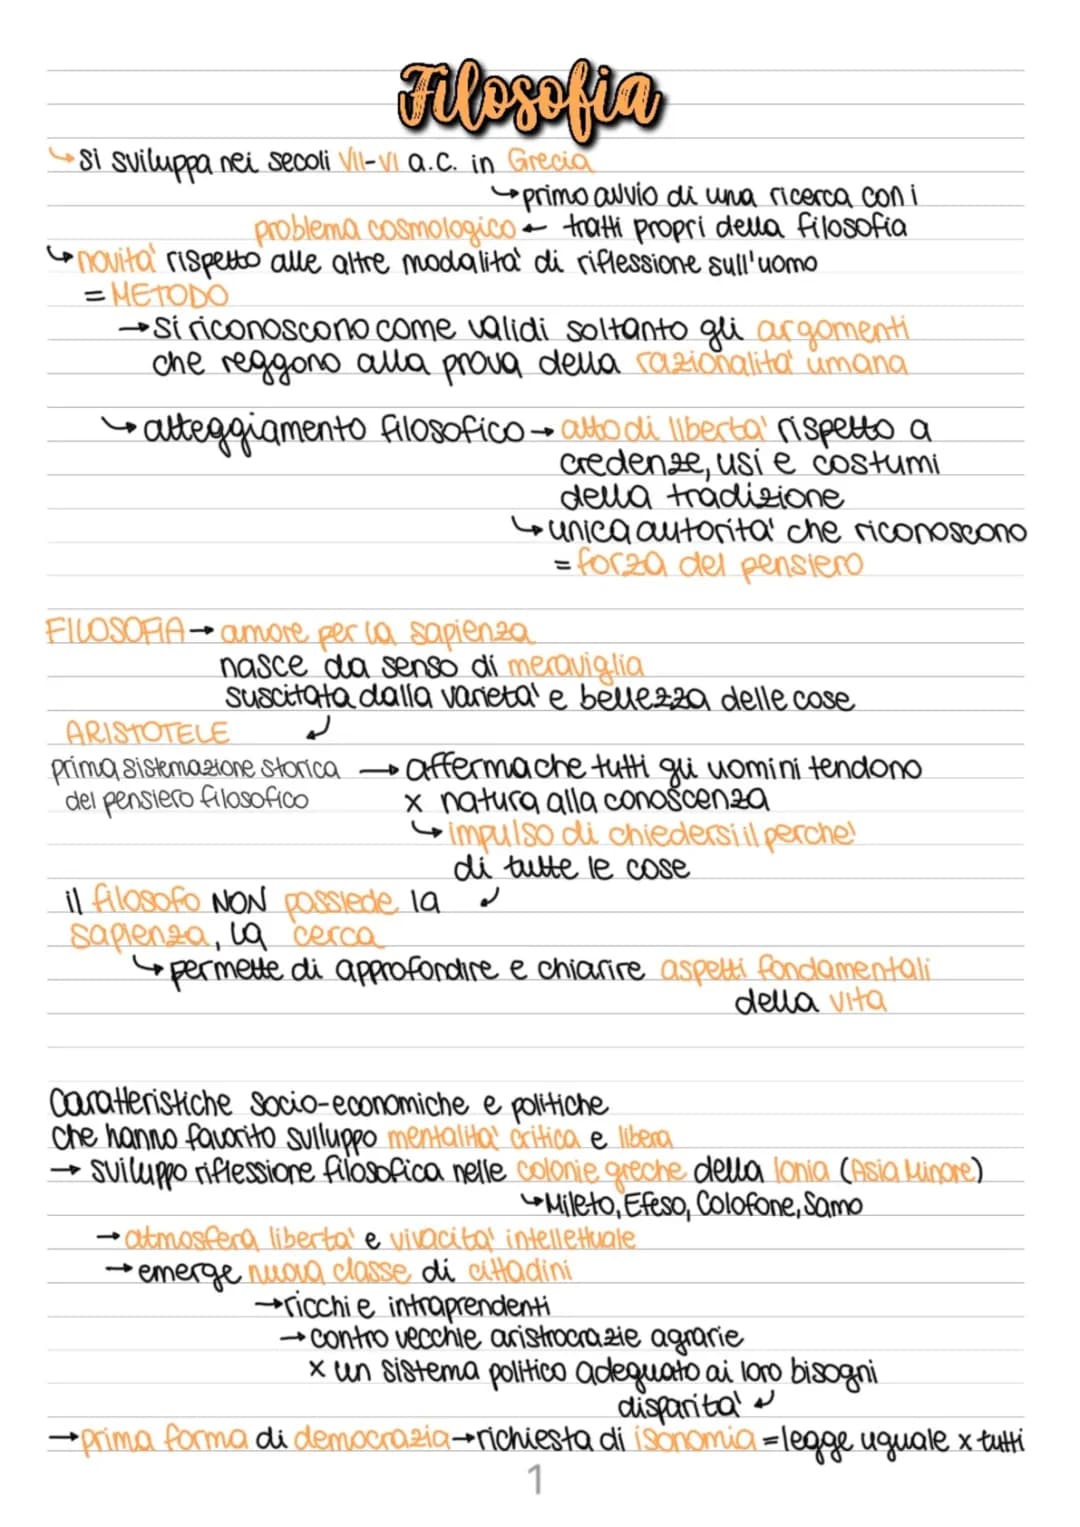 Filosofia
↳ si sviluppa nei secoli VII-VI a.C. in Grecia
↳ primo avvio di una ricerca con i
problema cosmologico ← tratti propri della filosofia
↳ novita' rispetto alle altre modalita' di riflessione sull'uomo
= METODO
→ si riconoscono come validi soltanto gli argomenti
che reggono alla prova della razionalita' umana
↳ atteggiamento filosofico → atto di liberta' rispetto a
credenze, usi e costumi
della tradizione
↳ unica autorita' che riconoscono
= forza del pensiero
FILOSOFIA → amore per la sapienza
nasce da senso di meraviglia
suscitata dalla varieta' e bellezza delle cose
ARISTOTELE ↲
prima sistemazione storica → afferma che tutti gli uomini tendono
del pensiero filosofico x natura alla conoscenza
↳ impulso di chiedersi il perche'
di tutte le cose
il filosofo NON possiede la ↲
sapienza, la cerca
↳ permette di approfondire e chiarire aspetti fondamentali
della vita
Caratteristiche socio-economiche e politiche
che hanno favorito sulluppo mentalita' critica e libera
→ sviluppo riflessione filosofica nelle colonie greche della Ionia (Asia Minore)
↳ Mileto, Efeso, Colofone, Samo
→ atmosfera liberta' e vivacita' intellettuale
→ emerge nuova classe di cittadini
→ ricchi e intraprendenti
→ contro vecchie aristrocrazie agrarie
x un sistema politico adeguato ai loro bisogni
disparita' ↲
→ prima forma di democrazia → richiesta di isonomia = legge uguale x tutti
1